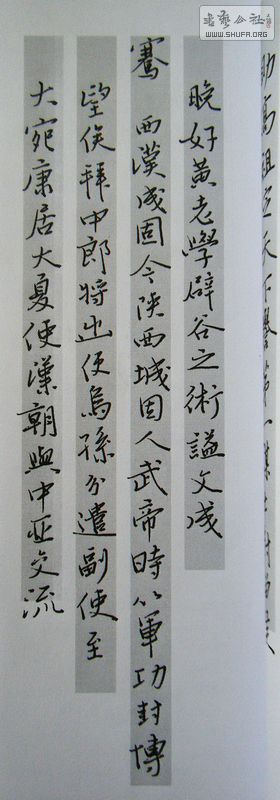 助高祖定天下
晚好黄老學辟谷之術謚文成
騫 西漢成固今陝西城固人武帝時以軍功封博
望侯拜中郎將出使烏孫分遣副使至
大宛康居大夏使漢朝與中亚交流
書藝公社
WWW.SHUFA.ORG